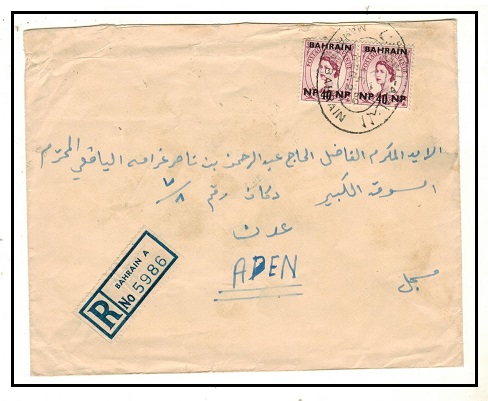 BAHRAIN BAHRAIN
NP 40 NP NP 40 NP
BAHRAIN
الايد المكرم الفاضل الحاج عبدالرحمن بن ناصر غرامه اليافعي المحترم
السوق الكبير دكان رقم ٨/٥
عدن
ADEN
مسجل
R
BAHRAIN A
No 5986